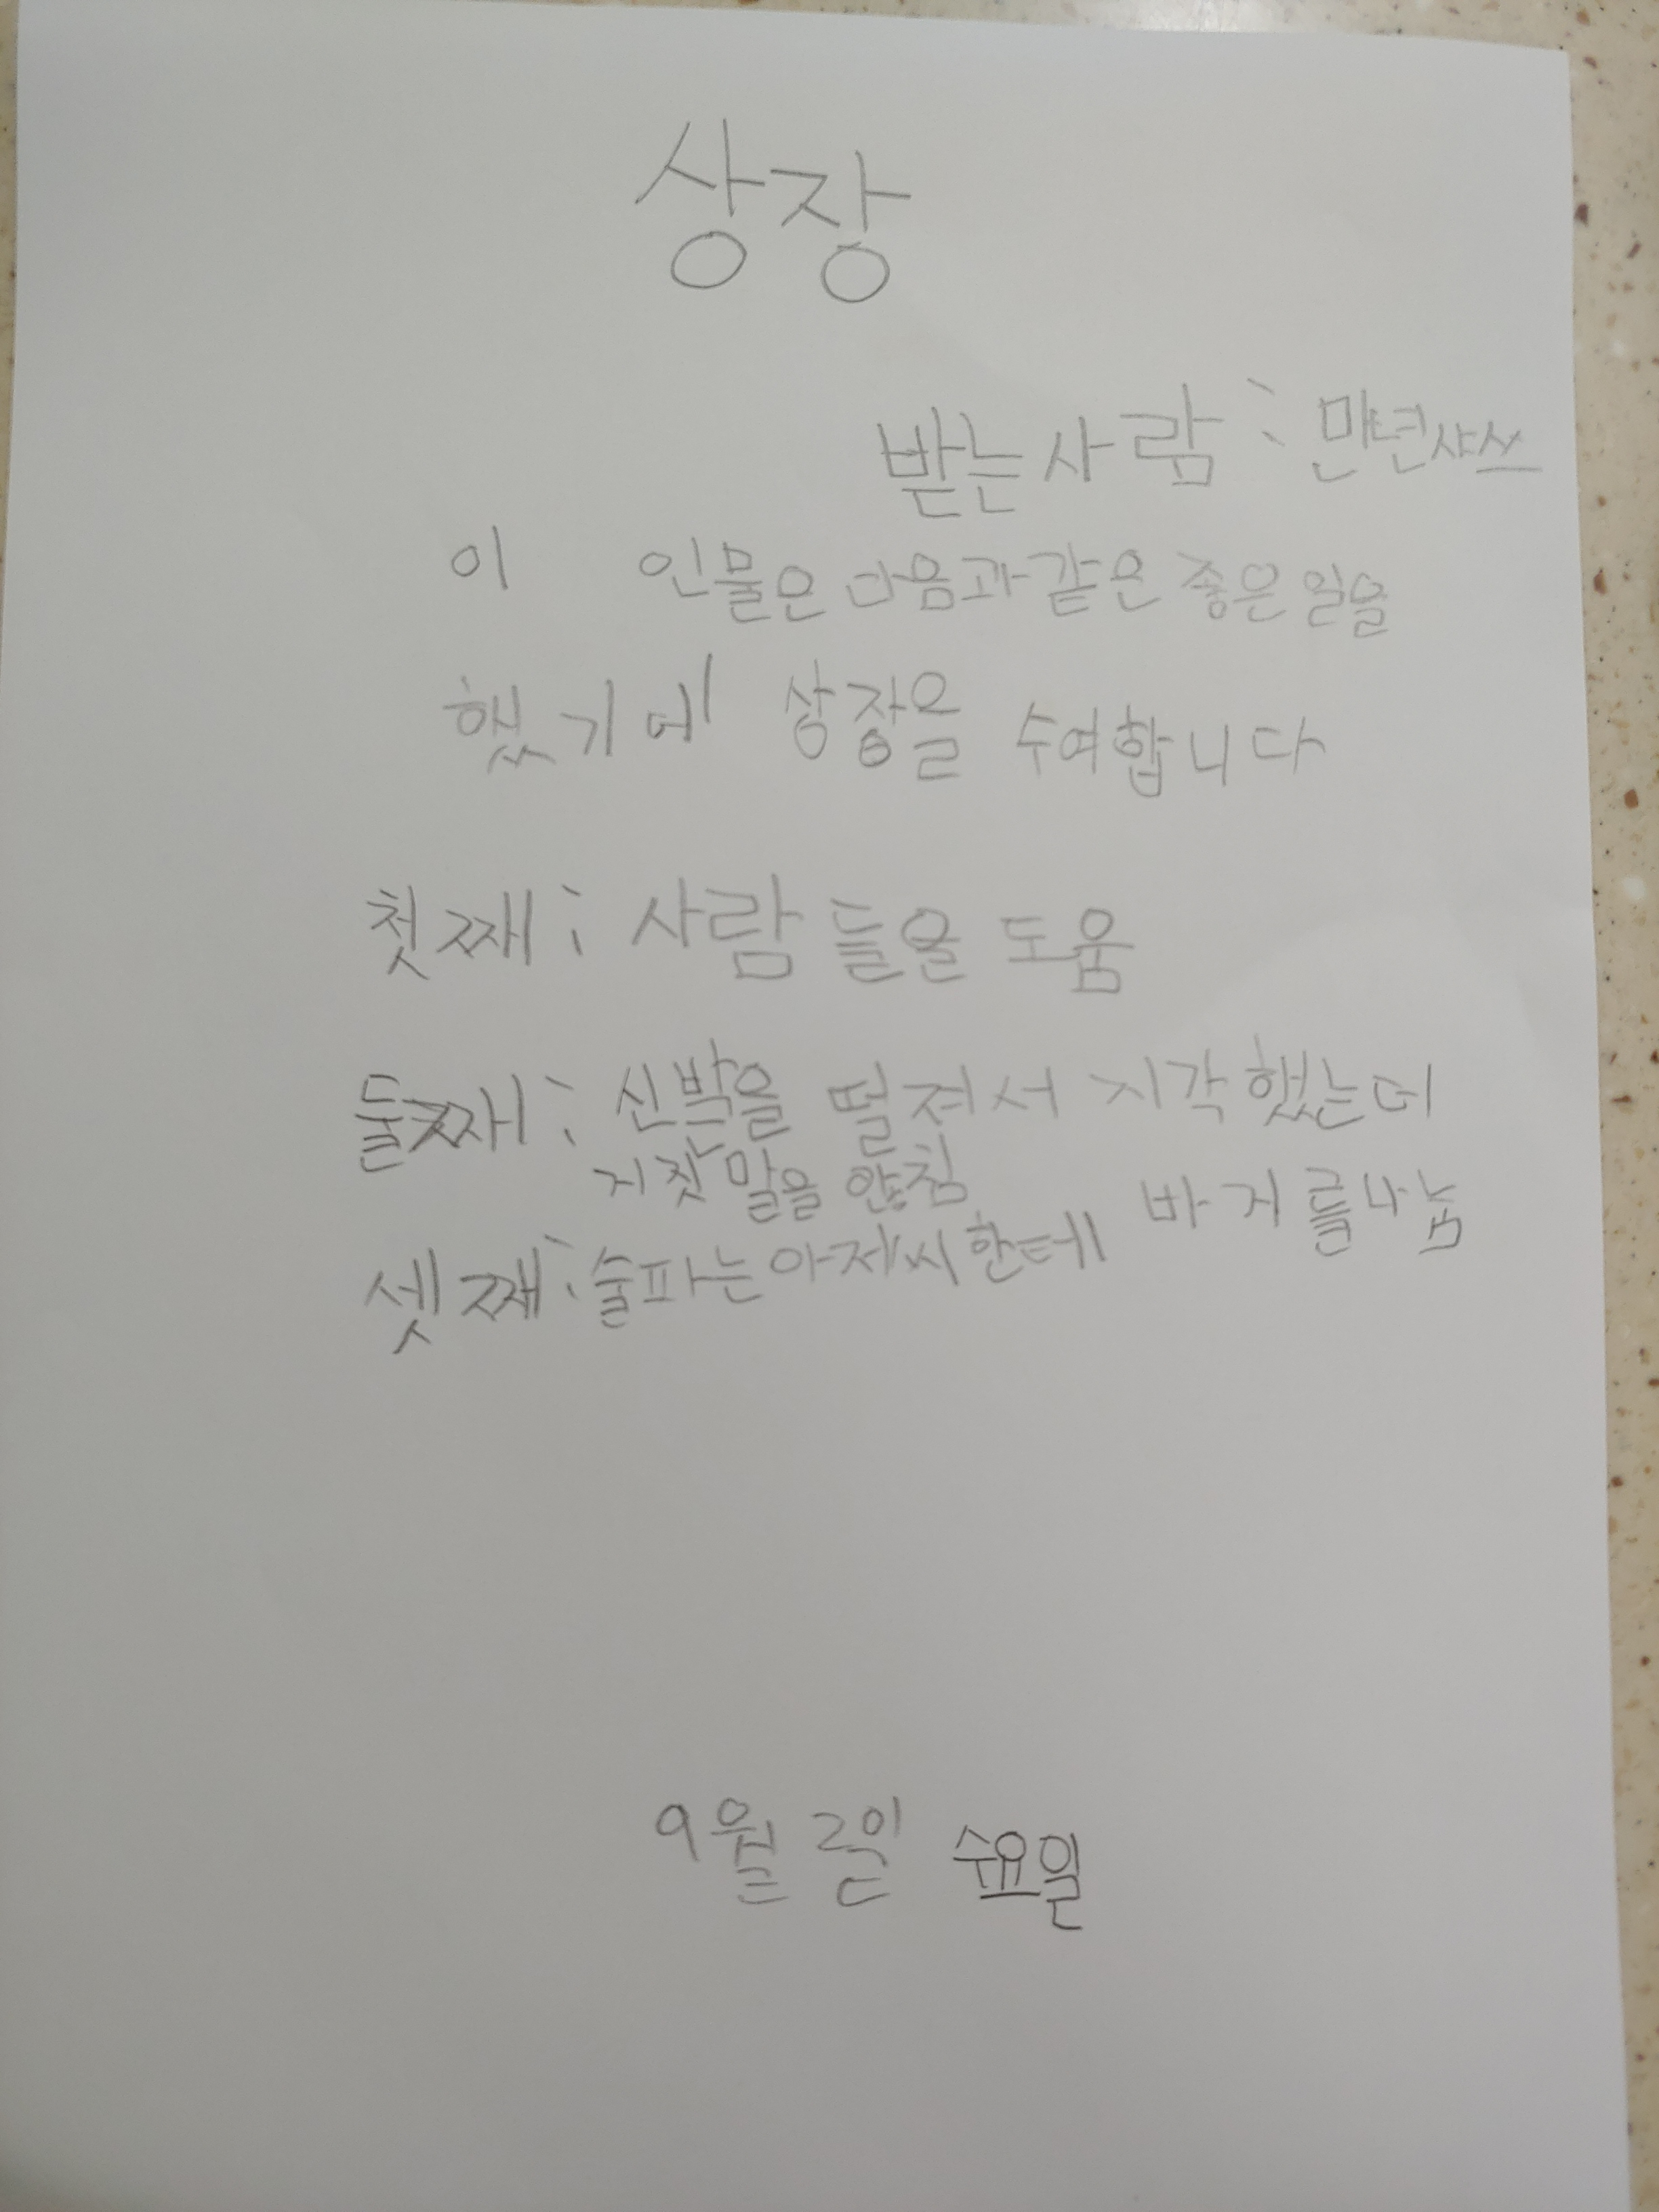 상장
받는사람 : 만년샤쓰
이 인물은 다음과 같은 좋은 일을
했기에 상장을 수여합니다
첫째 : 사람들을 도움
둘째 : 신발을 떨져서 지각했는데
거짓말을 않침
셋째 : 술파는아저씨한테 바지를나눔
9월 2일 수요일